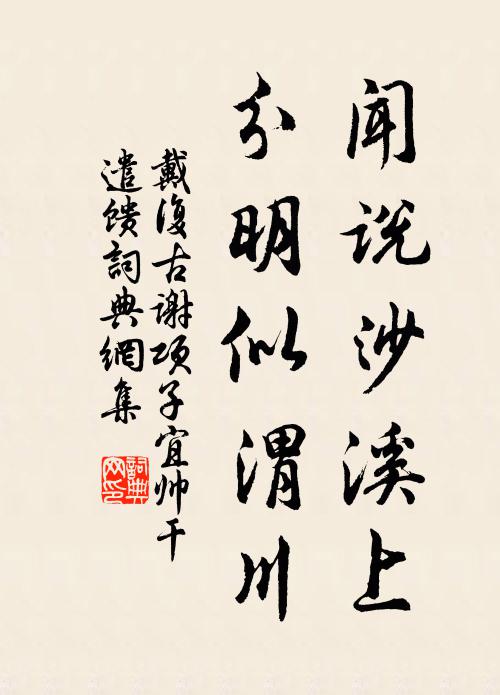 闻说沙溪上
分明似渭川
戴復古谢项子宜帅干
遣馈詞典網集
詞典
网印